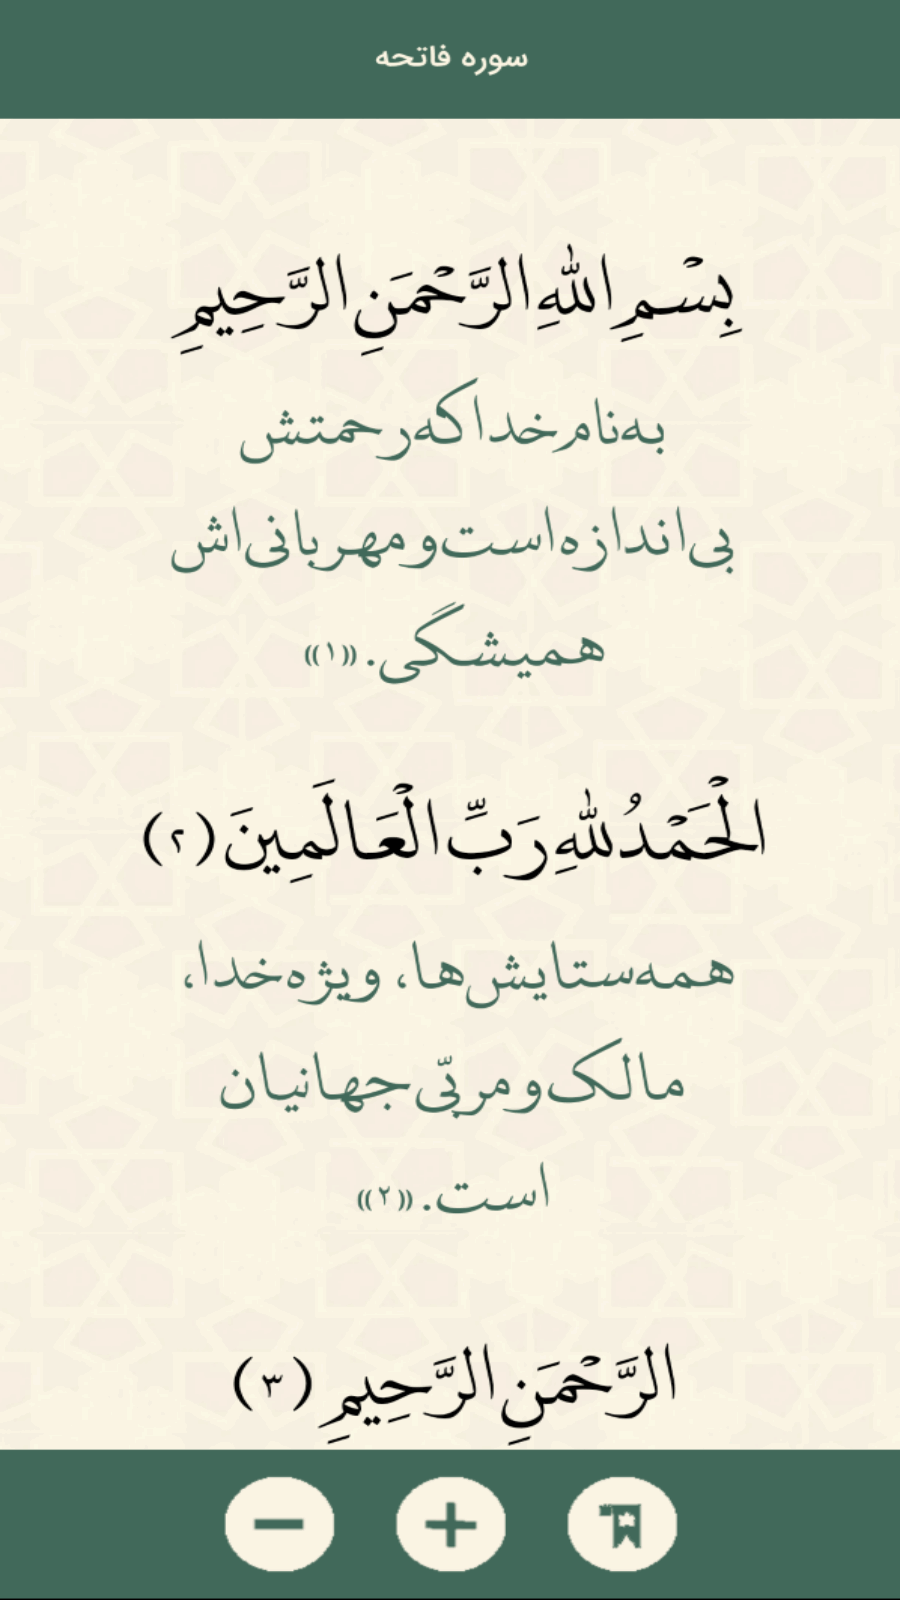 سوره فاتحه
بِسْمِ اللَّهِ الرَّحْمَنِ الرَّحِيمِ
به نام خدا که رحمتش
بی اندازه است و مهربانی اش
همیشگی. ((۱))
الْحَمْدُ لِلَّهِ رَبِّ الْعَالَمِينَ (۲)
همه ستایش ها، ویژه خدا،
مالک و مربّی جهانیان
است. ((۲))
الرَّحْمَنِ الرَّحِيمِ (۳)